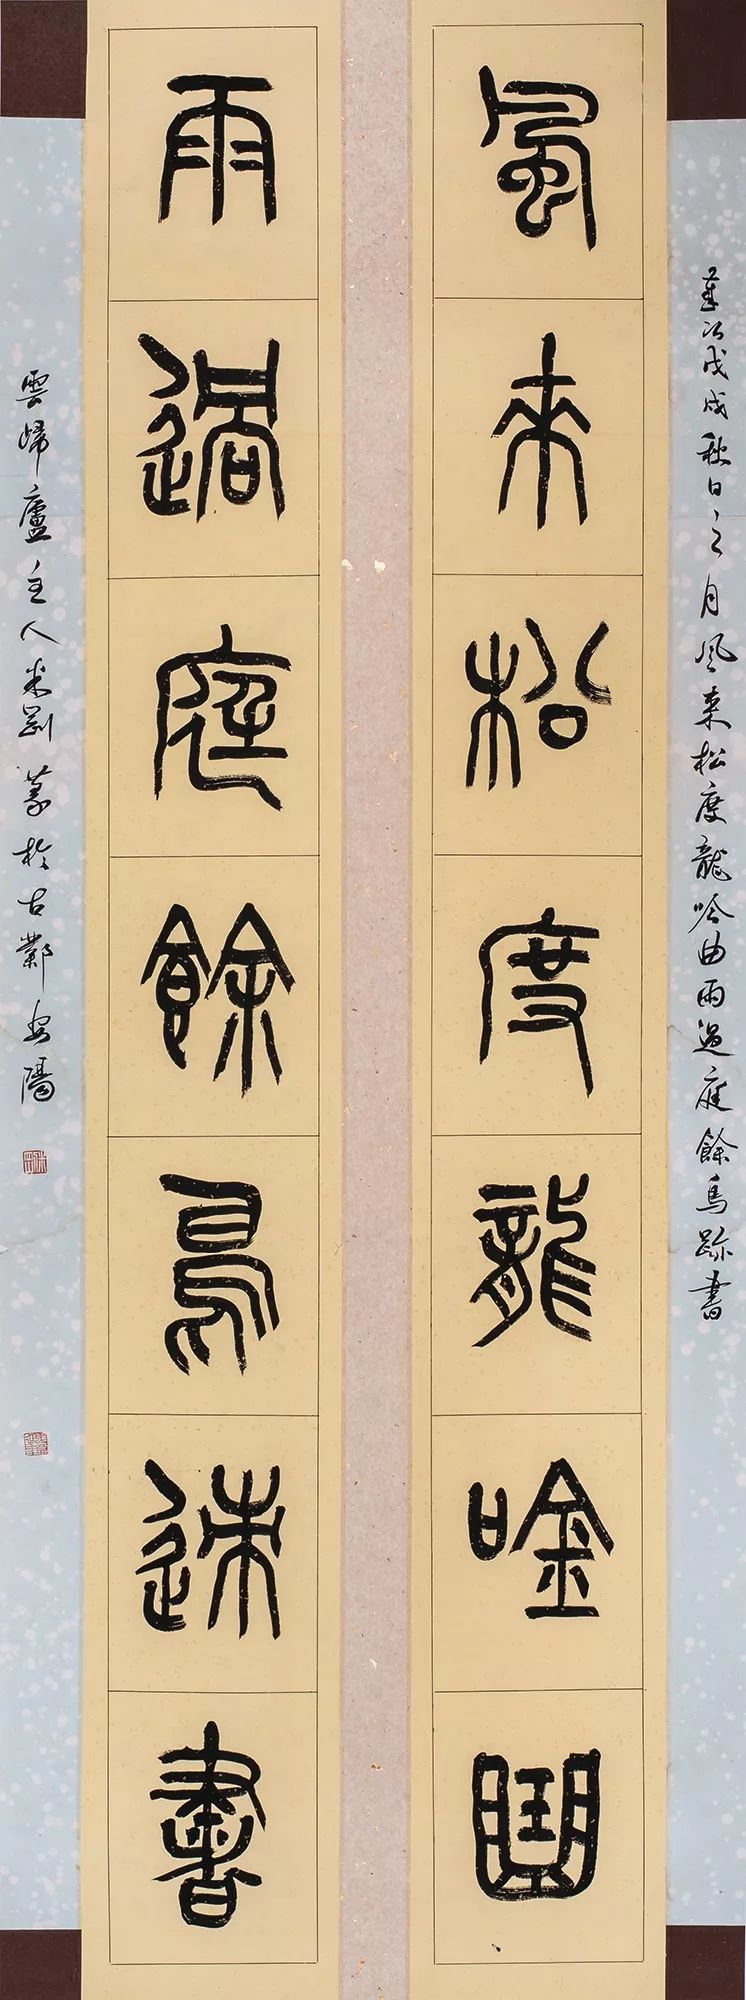 風來松度龍唫曲
雨過庭餘鳥迹書
歲次戊戌秋日之月風來松度龍吟曲雨過庭餘鳥跡書
雲歸廬主人米剛篆於古鄴安陽